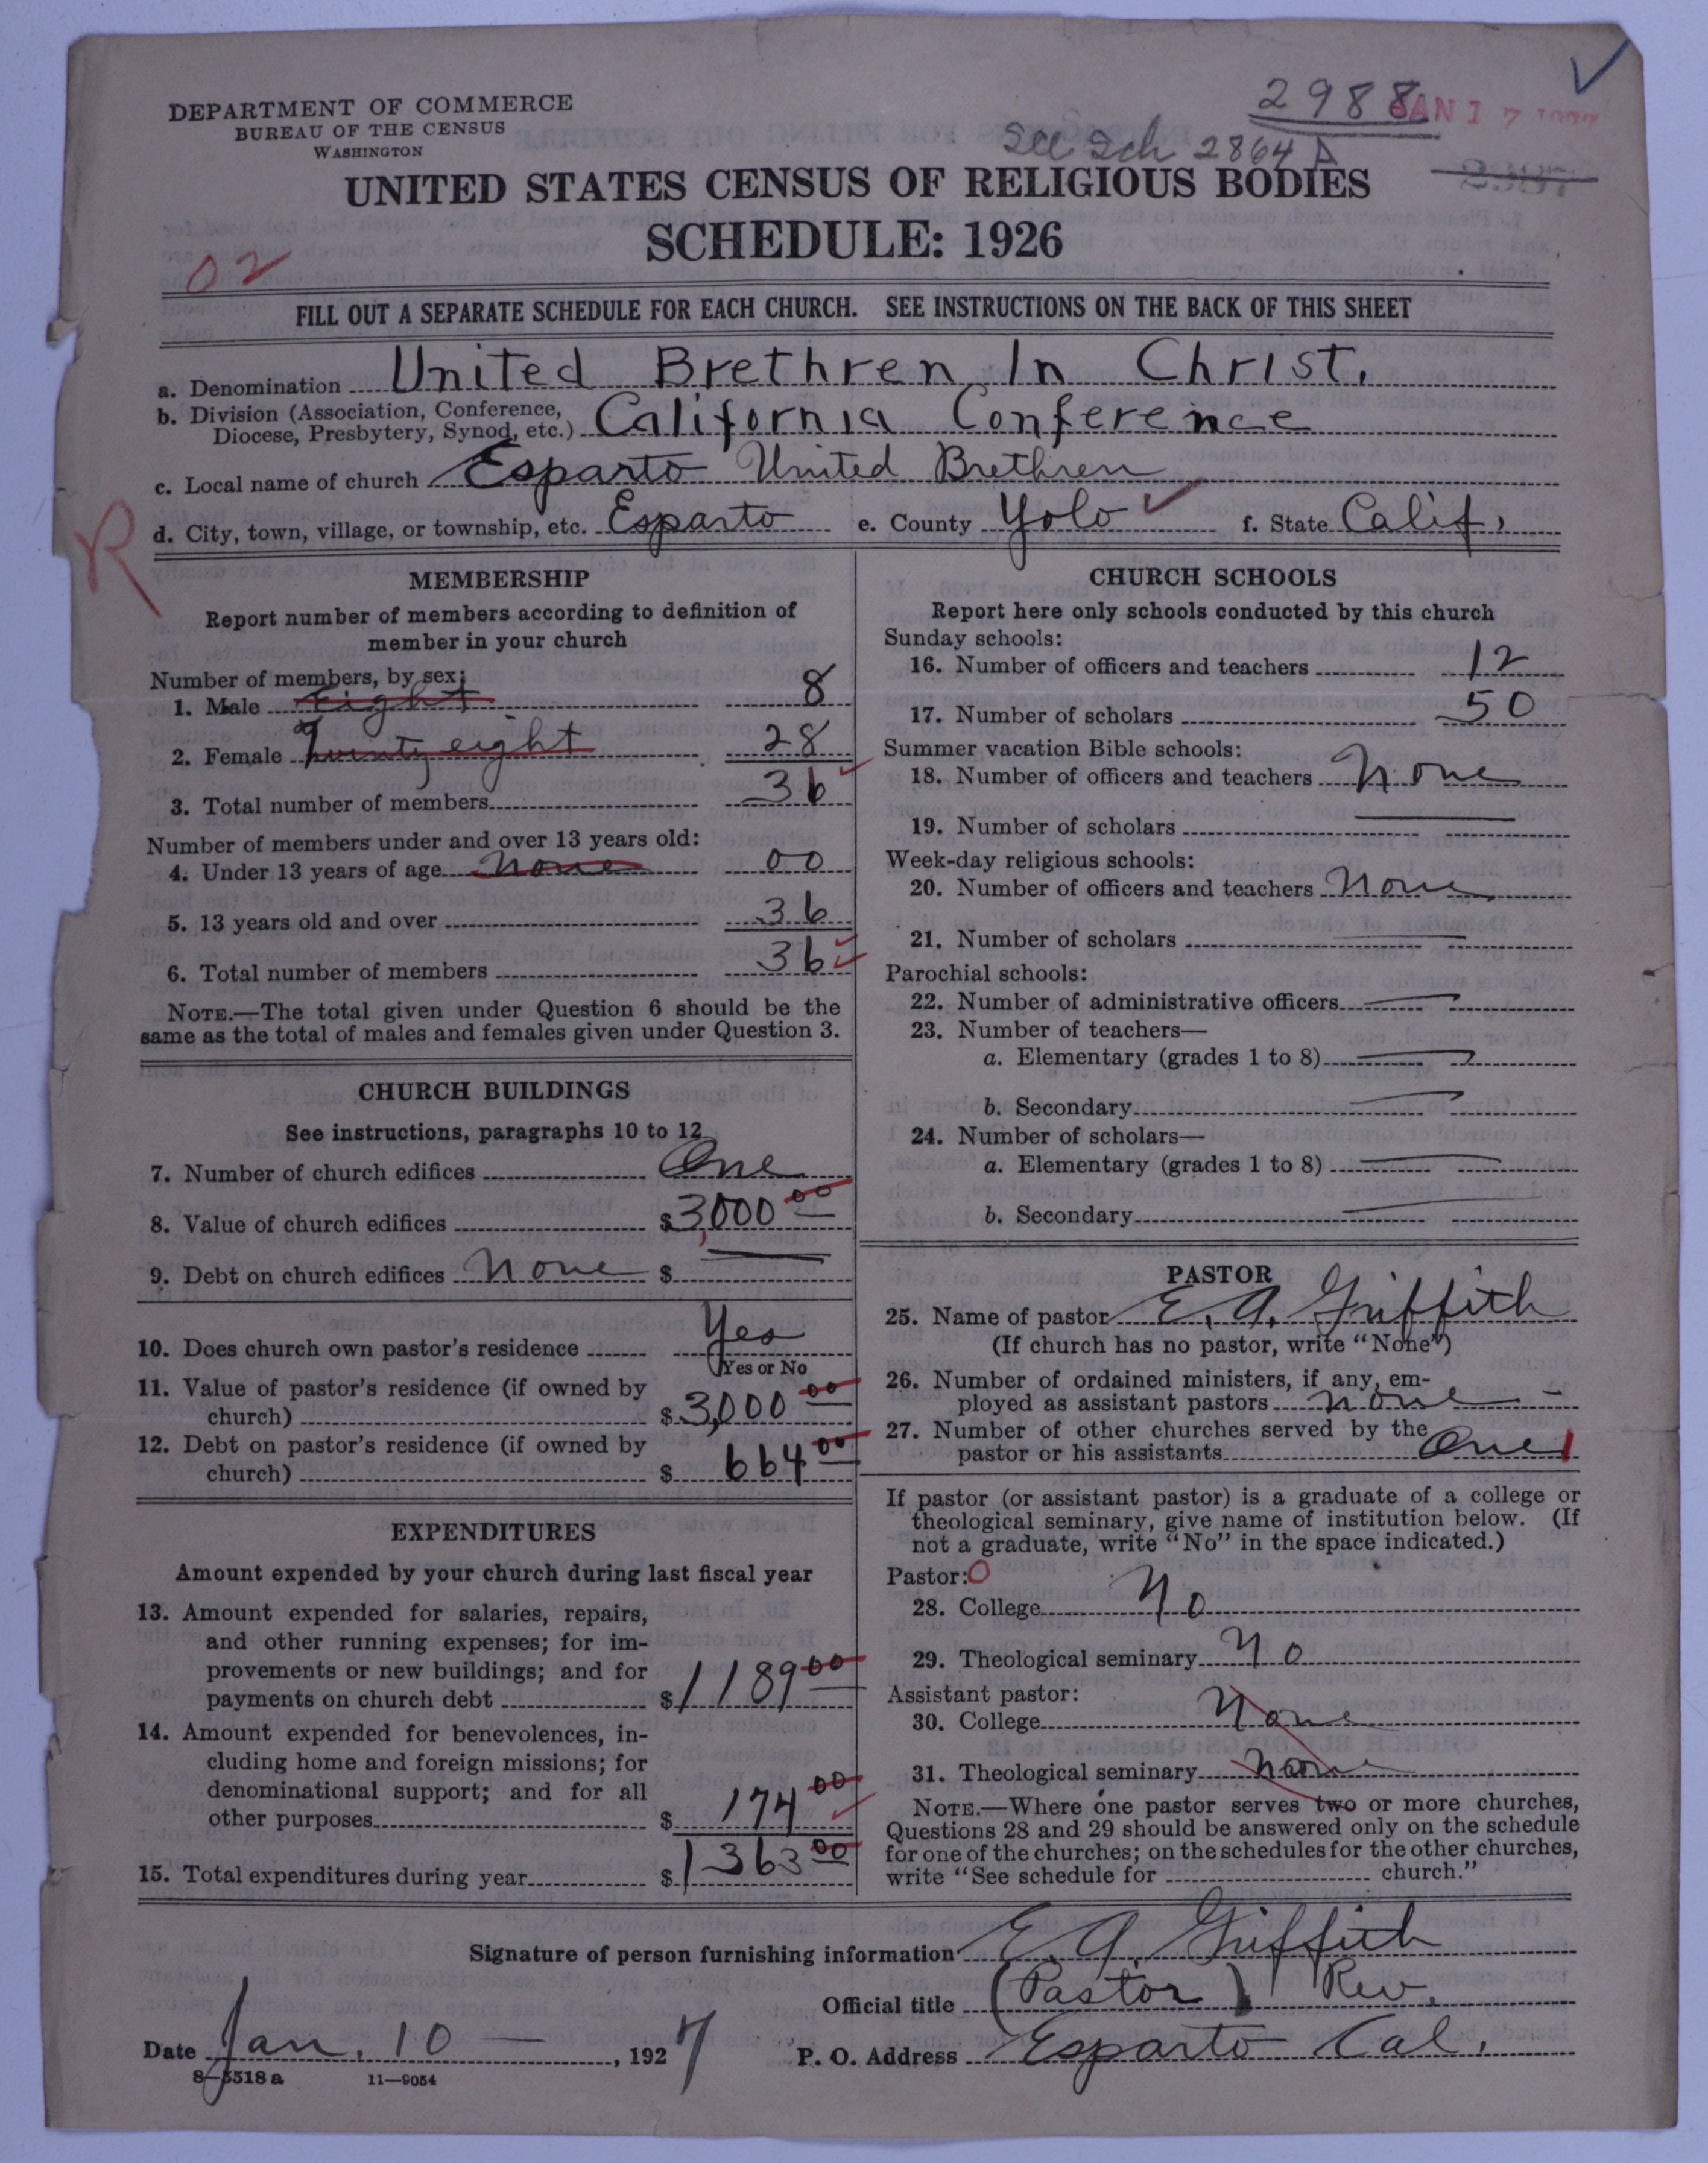 DEPARTMENT OF COMMERCE
BUREAU OF THE CENSUS
WASHINGTON
2988
JAN 17
See Sch 2864 A
UNITED STATES CENSUS OF RELIGIOUS BODIES
SCHEDULE: 1926
02
FILL OUT A SEPARATE SCHEDULE FOR EACH CHURCH. SEE INSTRUCTIONS ON THE BACK OF THIS SHEET
a. Denomination United Brethren In Christ.
b. Division (Association, Conference,
Diocese, Presbytery, Synod, etc.) California Conference
c. Local name of church Esparto United Brethren
d. City, town, village, or township, etc. Esparto e. County Yolo f. State Calif.
R
MEMBERSHIP
Report number of members according to definition of
member in your church
Number of members, by sex:
1. Male Eight 8
2. Female Twenty eight 28
3. Total number of members 36
Number of members under and over 13 years old:
4. Under 13 years of age none 00
5. 13 years old and over 36
6. Total number of members 36
NOTE.—The total given under Question 6 should be the
same as the total of males and females given under Question 3.
CHURCH BUILDINGS
See instructions, paragraphs 10 to 12
7. Number of church edifices One
8. Value of church edifices $3,000 00
9. Debt on church edifices None $
10. Does church own pastor's residence Yes
Yes or No
11. Value of pastor's residence (if owned by
church) $3,000 00
12. Debt on pastor's residence (if owned by
church) $ 664 00
EXPENDITURES
Amount expended by your church during last fiscal year
13. Amount expended for salaries, repairs,
and other running expenses; for im-
provements or new buildings; and for
payments on church debt $1189 00
14. Amount expended for benevolences, in-
cluding home and foreign missions; for
denominational support; and for all
other purposes $ 174 00
15. Total expenditures during year $1363 00
CHURCH SCHOOLS
Report here only schools conducted by this church
Sunday schools:
16. Number of officers and teachers 12
17. Number of scholars 50
Summer vacation Bible schools:
18. Number of officers and teachers None
19. Number of scholars
Week-day religious schools:
20. Number of officers and teachers None
21. Number of scholars
Parochial schools:
22. Number of administrative officers
23. Number of teachers—
a. Elementary (grades 1 to 8)
b. Secondary
24. Number of scholars—
a. Elementary (grades 1 to 8)
b. Secondary
PASTOR
25. Name of pastor E. A. Griffith
(If church has no pastor, write "None")
26. Number of ordained ministers, if any, em-
ployed as assistant pastors none
27. Number of other churches served by the
pastor or his assistants One 1
If pastor (or assistant pastor) is a graduate of a college or
theological seminary, give name of institution below. (If
not a graduate, write "No" in the space indicated.)
Pastor: 0
28. College No
29. Theological seminary No
Assistant pastor:
30. College None
31. Theological seminary None
NOTE.—Where one pastor serves two or more churches,
Questions 28 and 29 should be answered only on the schedule
for one of the churches; on the schedules for the other churches,
write "See schedule for church."
Signature of person furnishing information E. A. Griffith
Official title (Pastor) Rev.
Date Jan. 10 —, 1927 P. O. Address Esparto Cal.
8—5518a 11—9054